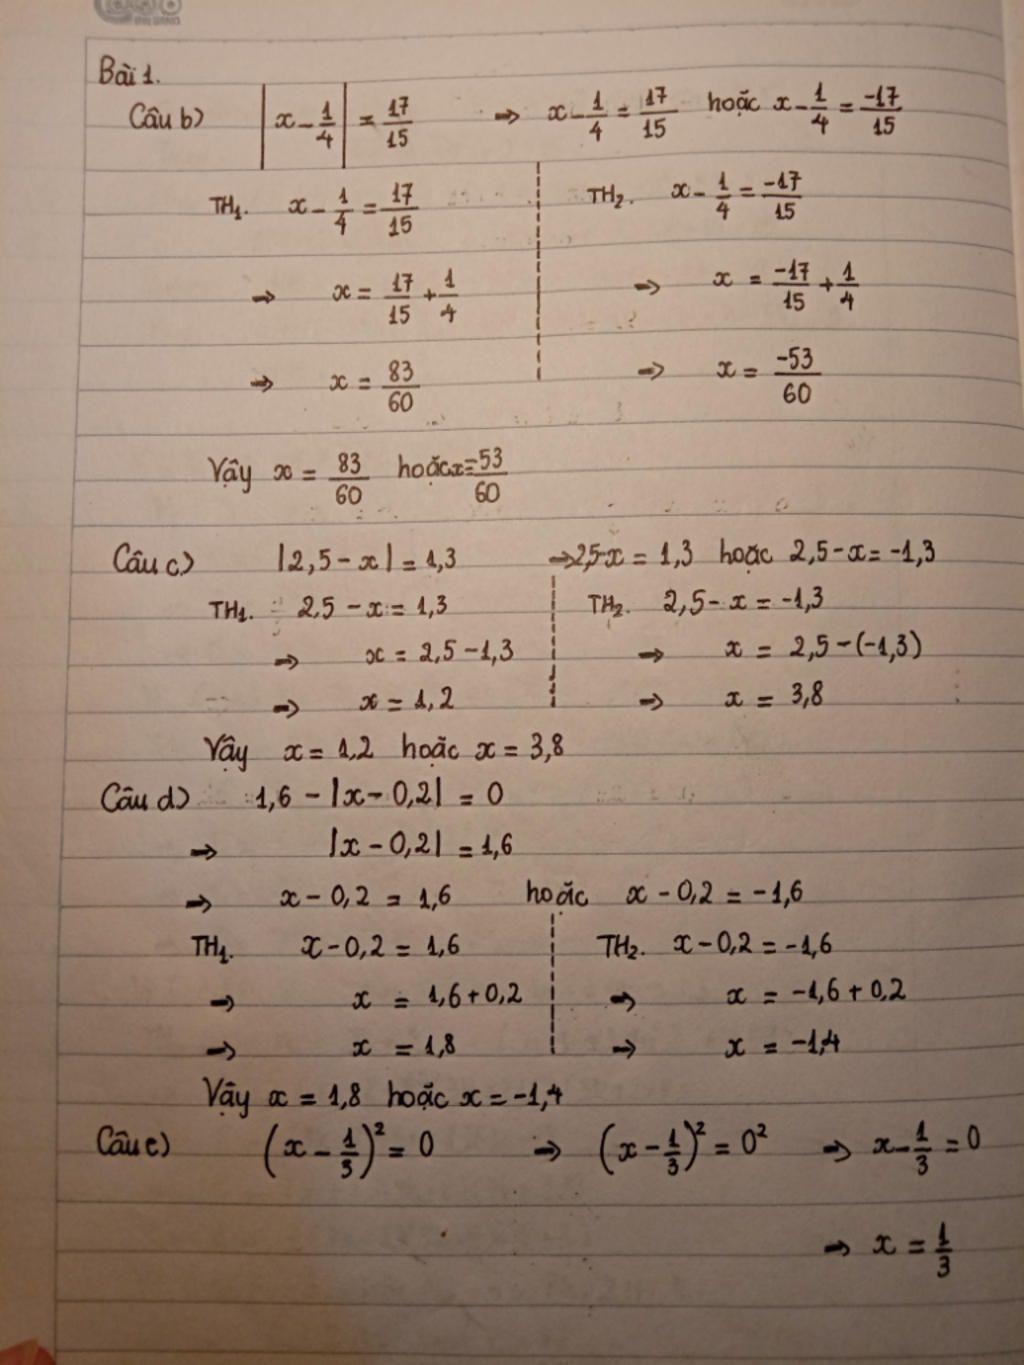 Bài 1.
Câu b) |x - 1/4| = 17/15 => x - 1/4 = 17/15 hoặc x - 1/4 = -17/15
TH1. x - 1/4 = 17/15 TH2. x - 1/4 = -17/15
=> x = 17/15 + 1/4 => x = -17/15 + 1/4
=> x = 83/60 => x = -53/60
Vậy x = 83/60 hoặc x = -53/60
Câu c) |2,5 - x| = 1,3 => 2,5 - x = 1,3 hoặc 2,5 - x = -1,3
TH1. 2,5 - x = 1,3 TH2. 2,5 - x = -1,3
=> x = 2,5 - 1,3 => x = 2,5 - (-1,3)
=> x = 1,2 => x = 3,8
Vậy x = 1,2 hoặc x = 3,8
Câu d) 1,6 - |x - 0,2| = 0
=> |x - 0,2| = 1,6
=> x - 0,2 = 1,6 hoặc x - 0,2 = -1,6
TH1. x - 0,2 = 1,6 TH2. x - 0,2 = -1,6
=> x = 1,6 + 0,2 => x = -1,6 + 0,2
=> x = 1,8 => x = -1,4
Vậy x = 1,8 hoặc x = -1,4
Câu e) (x - 1/3)² = 0 => (x - 1/3)² = 0² => x - 1/3 = 0
=> x = 1/3